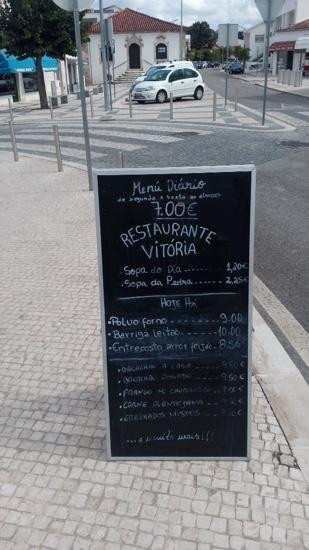 Menú Diário
de segunda a sexta ao almoço
7.00€
RESTAURANTE
VITÓRIA
- Sopa do Dia ........ 1,20€
- Sopa da Pedra ........ 2,25€
HOJE Há
• Polvo forno ........ 9.00
• Barriga leitão ........ 10.00
• Entrecosto arroz feijão .. 8.50
• BACALHAU À CASA ...... 9.50€
• DOURADO ...... 9.50€
• FRANGO NO CHURRASCO
• CARNE ALENTEJANA
• GRELHADOS MISTOS
... e muito mais!!!